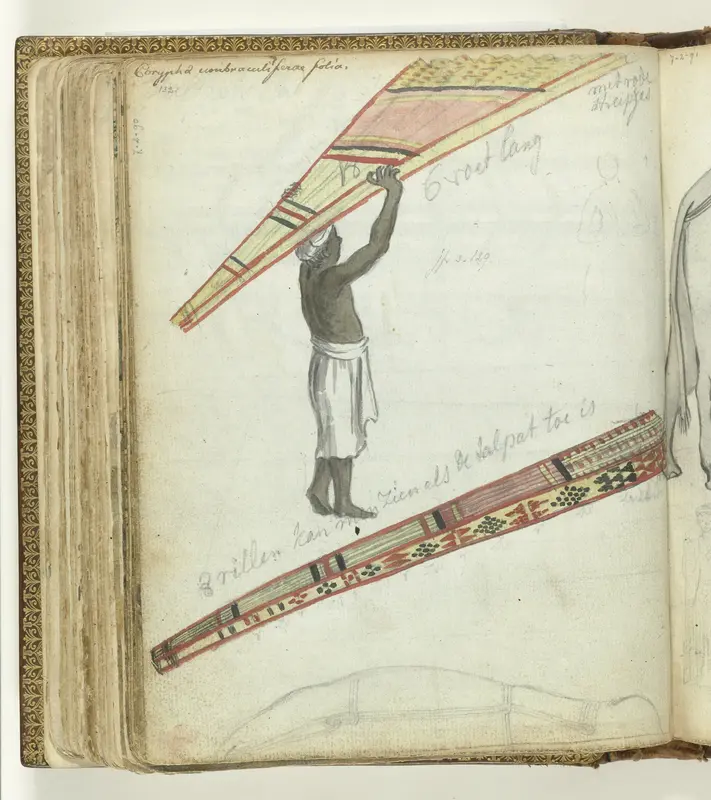 Corypha umbraculiferae folia.
132.
met rode
streepjes
6 voet lang
fp. 3.129.
8 rillen kan men zien als de talpat toe is